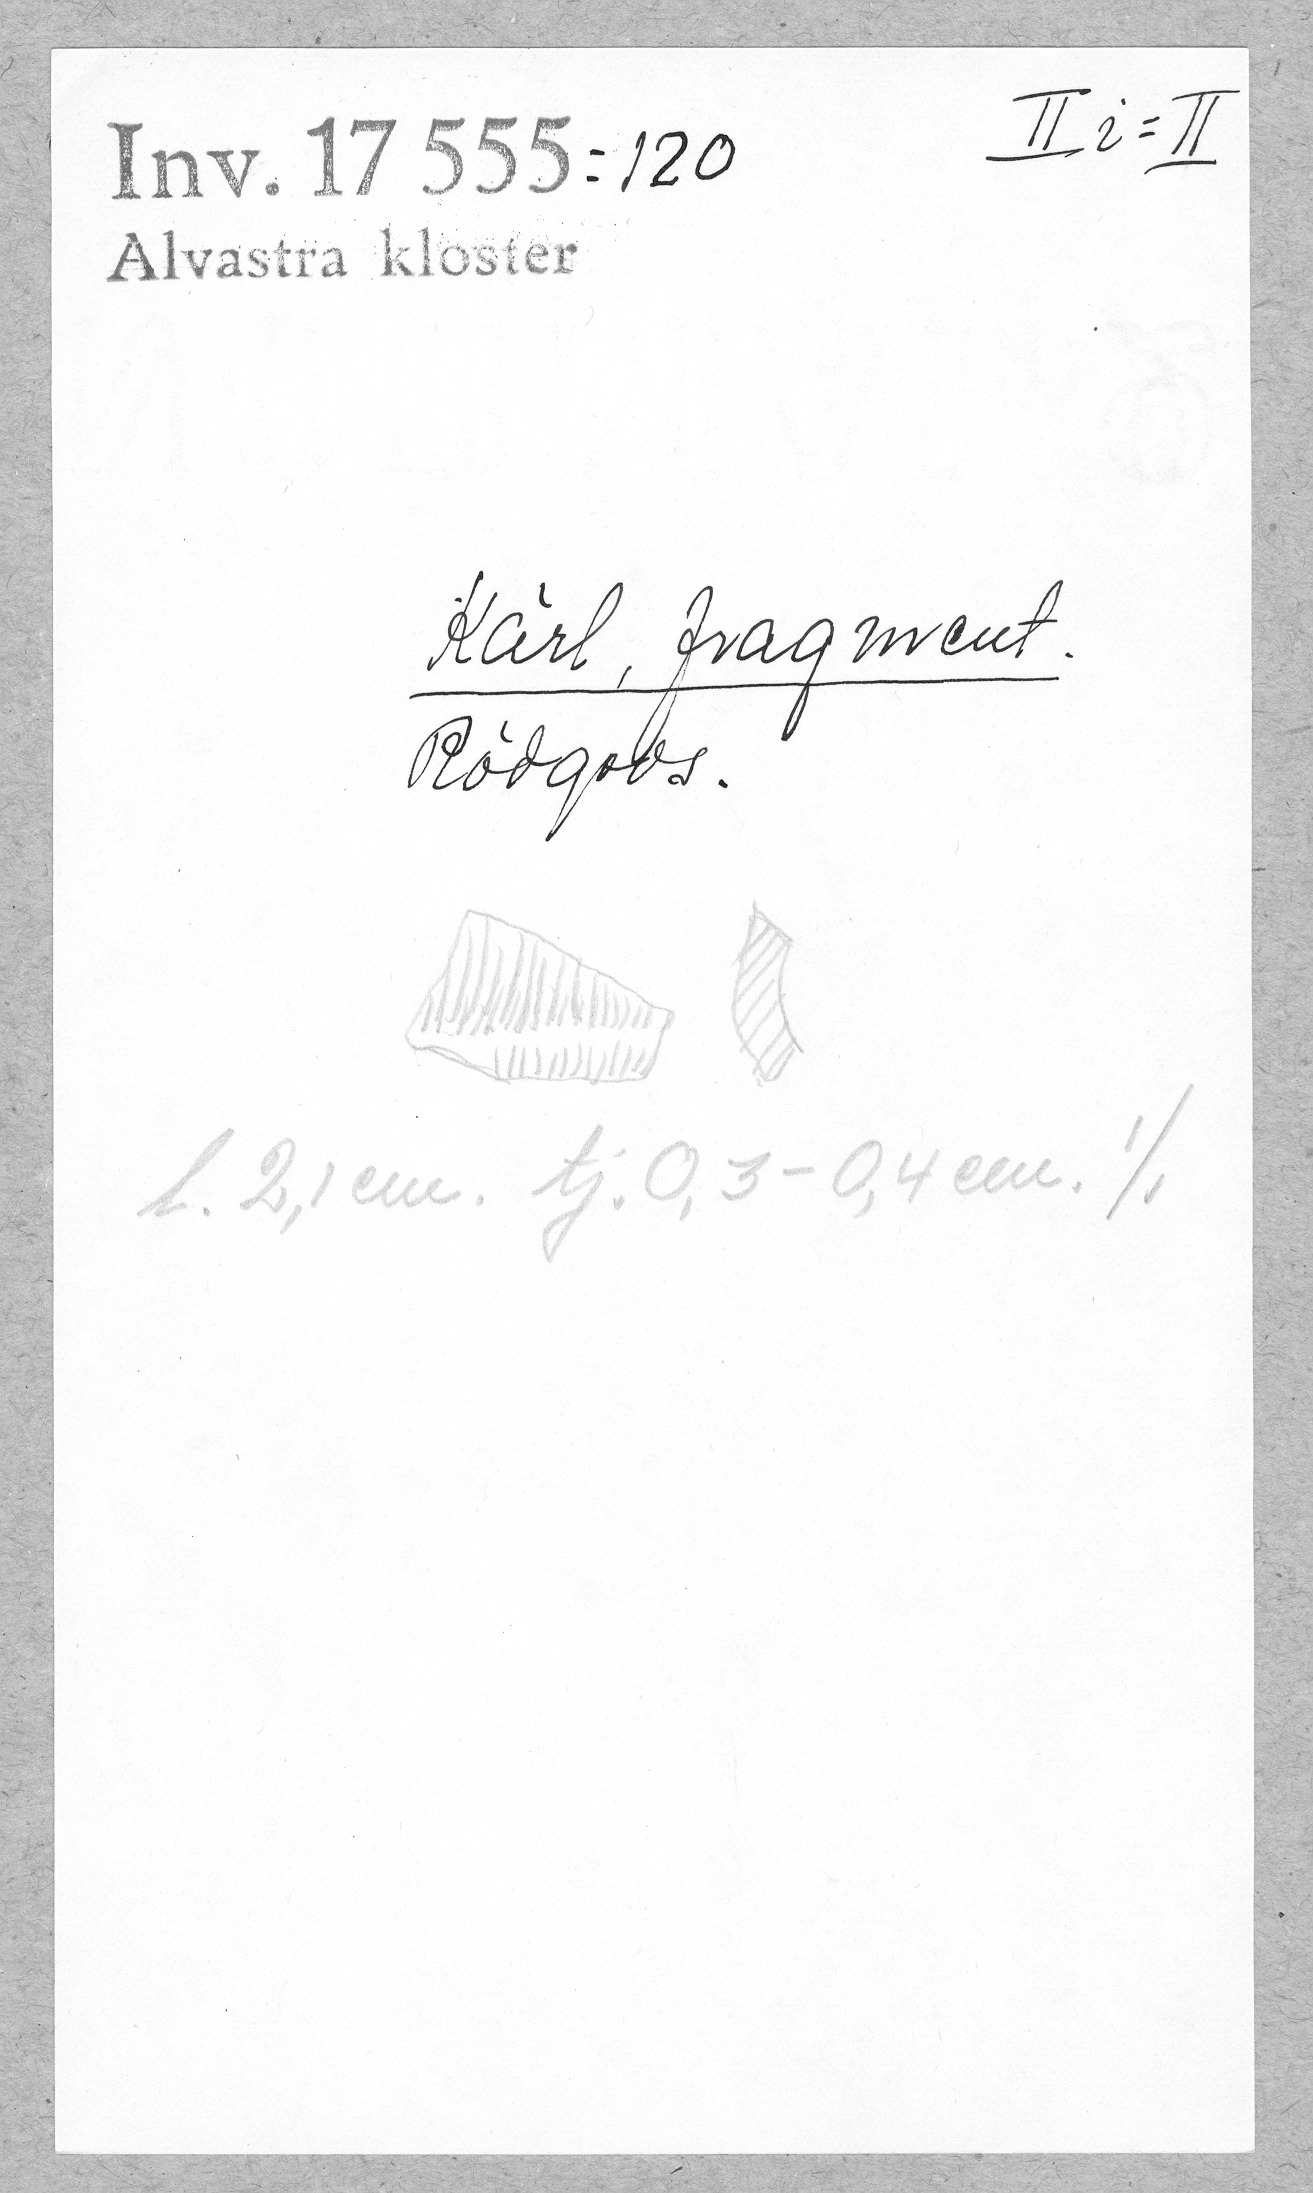 Inv. 17 555:120
II i=II
Alvastra kloster
Kärl, fragment.
Rödgods.
l. 2,1 cm. tj. 0,3-0,4 cm. 1/1